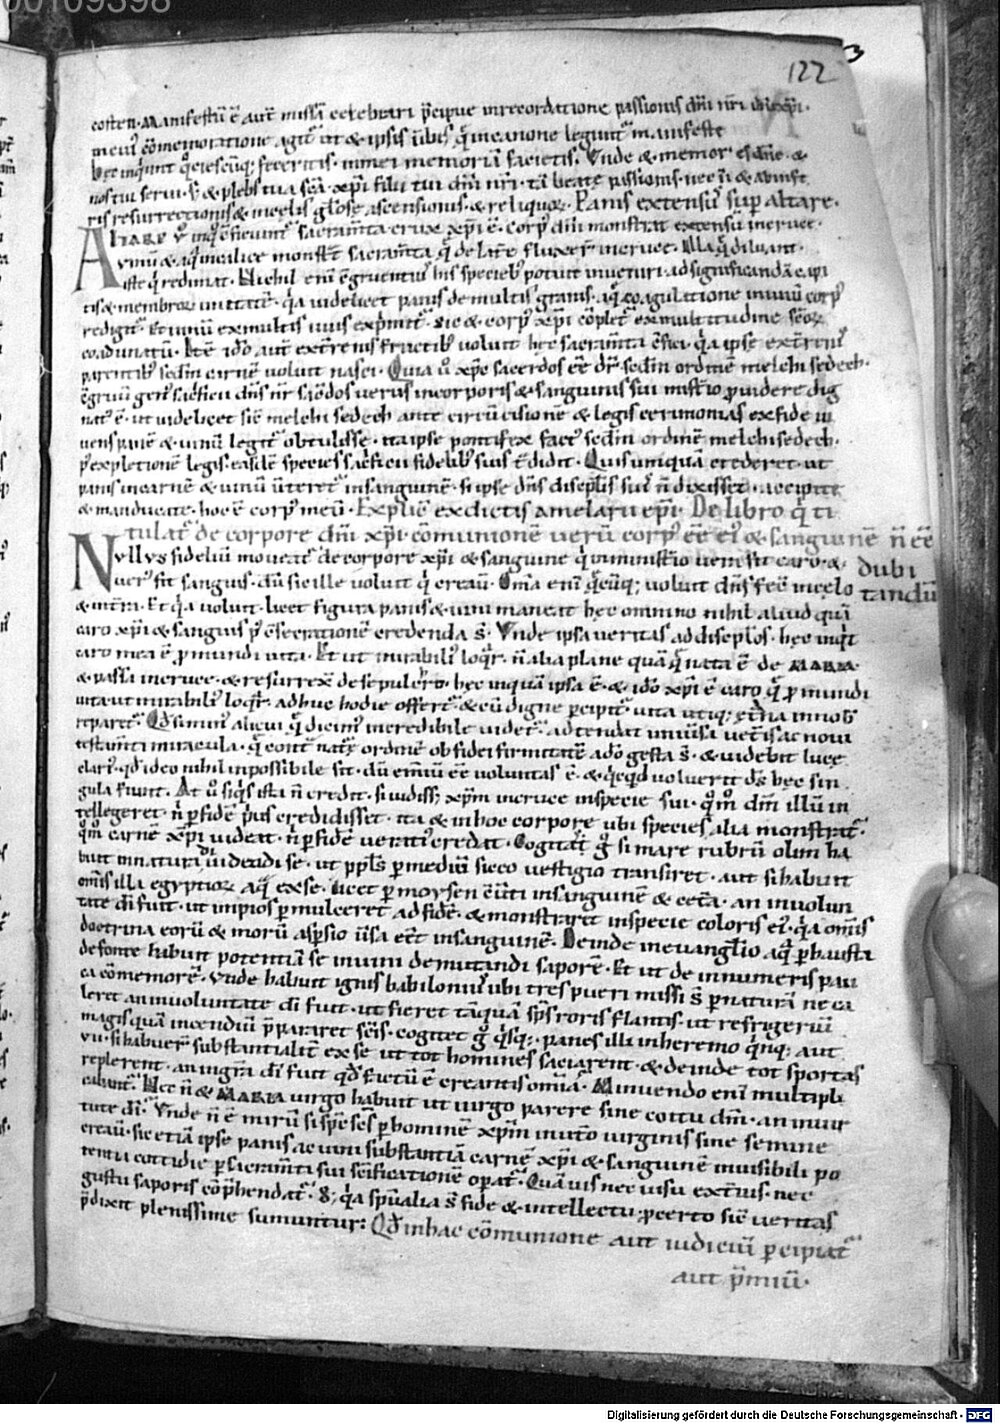 00109398
122
costen. Manifestū ē aut̄ missā celebrari p̄cipue in recordatione passionis dn̄i nr̄i
meus cōmemoratione agit᷑ ut & ipsis ūbis q̄ in canone legunt᷑ manifeste
feceritis. in mei memoriā facietis. Unde & memor
nos tui serui. s; & plebs tua sc̄a. xp̄i filii tui dn̄i nr̄i. tā beatę passionis. nec n̄ & ab inf
ris resurrectionis & in cęlis gl̄osę ascensionis & reliquor. Panis extensus sup altare.
Altare sacram̄ta crux xp̄i ē. corp dn̄i monstrat extensū in cruce.
Vinū & aqua in calice monst̄t sacram̄ta q̄ de lat̄e fluxer̄ in cruce. Illa q̄ diluant.
iste q̄ redimat. Nichil eni ēgruentius his specieb; potuit inueniri. ad significandā
tis & membror unitatē. q̄a uidelicet panis de multis granis. aq̄ coagulatione in unū corp
redigit᷑. Et uinū ex multis uuis exp̄mit᷑. sic & corp xp̄i cōplet᷑ ex multitudine sc̄or
coadunatū. Itē ido aut̄ ex t̄renis fructib; uoluit hęc sacram̄ta cfici. q̄a ipse ex t̄renis
parentib; sc̄dm carnē uoluit nasci. Quia ū xp̄c sacerdos ee dr̄. sc̄dm ordinē melchisedech.
dn̄s nr̄ sac̄dos uerus in corporis & sanguinis sui mist̄io p̄uidere dig
nat᷑ ē. ut uidelicet sic melchisedech ante circūcisionē & legis cerimonias ex fide
uens panē & uinū legit᷑ obtulisse. ita ipse pontifex fact᷑ sc̄dm ordinē melchisedech.
p̄ expletionē legis. easdē species sac̄ficii fidelib; suis t̄didit. Quis unquā crederet. ut
panis in carnē & uinū ūteret᷑ in sanguinē. si ipse dn̄s discip̄lis suis n̄ dixisset. accipite
& manducate. hoc ē corp meū. Explic̄ ex dictis amelarii ep̄i. De libro q̄ ti
tulat᷑ de corpore dn̄i xp̄i. cōmunionē uerū corp ēē ei᷑ & sanguinē n̄ ēē
dubi
tandū
Nullus fideliū moueat᷑ de corpore xp̄i & sanguine q̄ in mist̄io uere sit caro. &
uer᷑ sit sanguis. dū sic ille uoluit q̄ creau̅. Om̄a eni q̄cūq; uoluit dn̄s fec̄ in cęlo
& in t̄ra. Et q̄a uoluit. licet figura panis & uini maneat. hęc omnino nihil aliud quā
caro xp̄i & sanguis p̄ cōsecrationē credenda s̄. Unde ipsa ueritas ad discip̄los. hęc inq̄t
caro mea ē p̄ mundi uita. Et ut mirabili᷑ loq̄r. n̄ alia plane quā q̄ nata ē de MARIA.
& passa in cruce. & resurrex̄ de sepulcro. hęc inquā ipsa ē. & ido xp̄i ē caro q̄ p̄ mundi
uita ut mirabili᷑ loq̄r. adhuc hodie offert᷑. & cū digne p̄cipit᷑ uita utiq; et̄na in nob̄
reparet᷑. Qd si cuius alicui q̄ dicim᷑ incredibile uidet᷑. adtendat uniūsa uet̄is ac noui
testam̄ti miracula. q̄ cont̄ nat᷑ę ordinē ob fidei firmitatē a do gesta s̄. & uidebit luce
clari᷑. qd ideo nihil inpossibile sit. dū omniū ēē uoluntas ē. & q̄cq̄d uoluerit ds̄. hęc sin
gula fiunt. At ū siq̄s ista n̄ credit. si uidiss; xp̄m in cruce in specie sui. q̄m dm̄ illū in
tellegeret. n̄ p̄ fidē p̄us credidisset. ita & in hoc corpore ubi species alia monstrat᷑.
q̄m carnē xp̄i uideat. n̄ p̄ fidē uerati᷑ credat. Cogitat q̄ si mare rubrū olim ha
buit in natura diuidendi se. ut pp̄ls p̄ mediū sicco uestigio transiret. aut si habuit
om̄is illa egyptior aq̄ ex se. licet p̄ moysen ūti in sanguinē & cet̄a. an in uolun
tate di fuit. ut impios p̄mulceret ad fidē. & monstraret in specie coloris ei᷑. q̄a om̄is
doctrina eorū & morū asp̄sio ūsa eēt in sanguinē. Deinde in euanglio aq̄ p̄hausta
de fonte habuit potentiā se in uini demutandi saporē. Et ut de innumeris pau
ca cōmemorē. Unde habuit ignis babilonius ubi tres pueri missi s̄ p̄ naturā ne ca
leret. an in uoluntate di fuit. ut fieret tāquā sp̄s roris flantis. ut refrigeriū
magis quā incendiū p̄pararet sc̄is. cogitet q̄ q̄sq;. panes illi in heremo q̄nq; aut
VII. si habuer̄ substantialit̄ ex se. ut tot homines saciarent. & deinde tot sportas
replerent. an in gr̄a di fuit qd factū ē creantis om̄ia. Minuendo eni multipli
cabunt᷑. Nec n̄ & MARIA uirgo habuit ut uirgo parere sine coitu dm̄. an in uir
tute di. Unde n̄ ē mirū si sp̄c sc̄s p̄ hominē xp̄m in utero uirginis sine semine
creau̅. sic etiā ipse panis ac uini substantiā carnē xp̄i & sanguinē inuisibili po
tentia cottidie p̄ sacram̄ti sui sc̄ificationē op̄at᷑. Quāuis nec uisu ext̄ius. nec
gustu saporis cōp̄hendat᷑. s; q̄a sp̄ualia s̄ fide & intellectu. p̄ certo sic ueritas
p̄dixit plenissime sumuntur; Qd in hac cōmunione aut iudiciū p̄cipiat᷑
aut p̄miū.
Digitalisierung gefördert durch die Deutsche Forschungsgemeinschaft - DFG